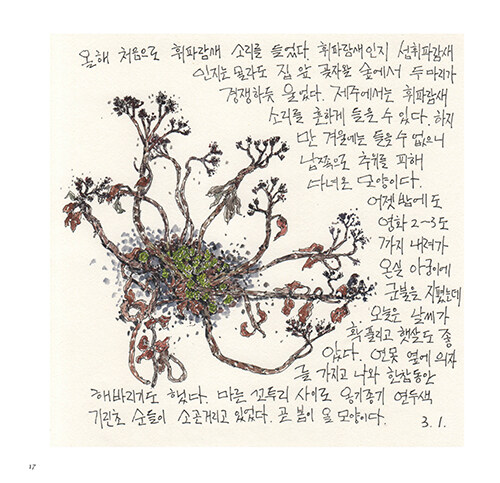 올해 처음으로 휘파람새 소리를 들었다. 휘파람새인지 섬휘파람새
인지는 몰라도 집 앞 곶자왈 숲에서 두 마리가
경쟁하듯 울었다. 제주에서는 휘파람새
소리를 흔하게 들을 수 있다. 하지
만 겨울에는 들을 수 없으니
남쪽으로 추위를 피해
다녀온 모양이다.
어젯밤에도
영하 2~3도
까지 내려가
온실 아궁이에
군불을 지폈는데
오늘은 날씨가
확 풀리고 햇살도 좋
았다. 연못 옆에 의자
를 가지고 나와 한참동안
해바라기도 했다. 마른 꼬투리 사이로 옹기종기 연두색
기린초 순들이 소곤거리고 있었다. 곧 봄이 올 모양이다.
3.1.
17